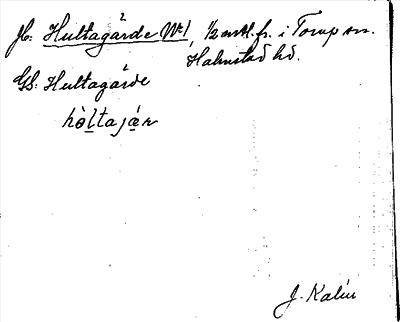 Jb: Hultagårde No 1, 1/2 mtl. fr. i Torup sn.
Halmstad hd.
Gb: Hultagårde
hòltajár
J. Kalén